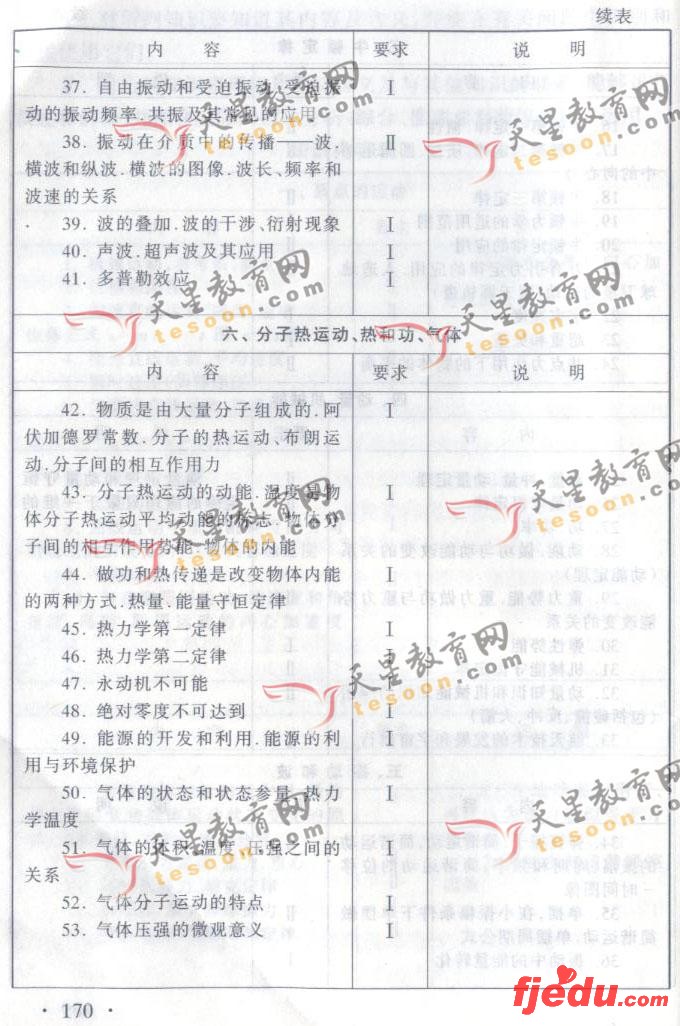 续表
内 容 要求 说 明
37. 自由振动和受迫振动.受迫振 Ⅰ
动的振动频率.共振及其常见的应用
38. 振动在介质中的传播——波. Ⅱ
横波和纵波.横波的图像.波长、频率和
波速的关系
39. 波的叠加.波的干涉、衍射现象 Ⅰ
40. 声波.超声波及其应用 Ⅰ
41. 多普勒效应 Ⅰ
六、分子热运动、热和功、气体
内 容 要求 说 明
42. 物质是由大量分子组成的.阿 Ⅰ
伏加德罗常数.分子的热运动、布朗运
动.分子间的相互作用力
43. 分子热运动的动能.温度是物 Ⅰ
体分子热运动平均动能的标志.物体分
子间的相互作用势能.物体的内能
44. 做功和热传递是改变物体内能 Ⅰ
的两种方式.热量.能量守恒定律
45. 热力学第一定律 Ⅰ
46. 热力学第二定律 Ⅰ
47. 永动机不可能 Ⅰ
48. 绝对零度不可达到 Ⅰ
49. 能源的开发和利用.能源的利 Ⅰ
用与环境保护
50. 气体的状态和状态参量.热力 Ⅰ
学温度
51. 气体的体积、温度、压强之间的 Ⅰ
关系
52. 气体分子运动的特点 Ⅰ
53. 气体压强的微观意义 Ⅰ
· 170 ·
天星教育网
tesoon.com
天星教育网
tesoon.com
天星教育网
tesoon.com
天星教育网
tesoon.com
天星教育网
tesoon.com
天星教育网
tesoon.com
天星教育网
tesoon.com
天星教育网
tesoon.com
天星教育网
tesoon.com
fjedu.com